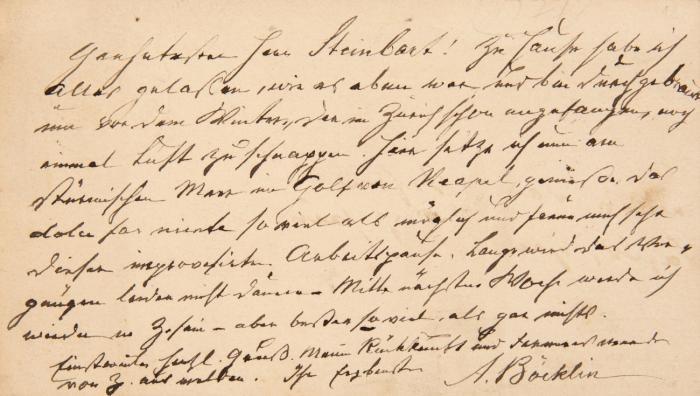 Geehrtester Herr Steinbart! Zu Hause habe ich
alles gelassen, wie es eben war und bin durchgebrannt
um vor dem Winter, der in Zürich schon angefangen, noch
einmal Luft zu schnappen. Hier sitze ich nun am
stürmischen Meer im Golf von Neapel, geniesse das
dolce far niente so viel als möglich und freue mich sehr
dieser improvisirten Arbeitspause. Lange wird das Ver-
gnügen leider nicht dauern – Mitte nächster Woche werde ich
wieder in Z. sein – aber besser so viel, als gar nichts.
Einstweilen herzl. Gruß. Meine Rückkunft und werde
von Z. aus melden. Ihr Ergebenster A. Böcklin